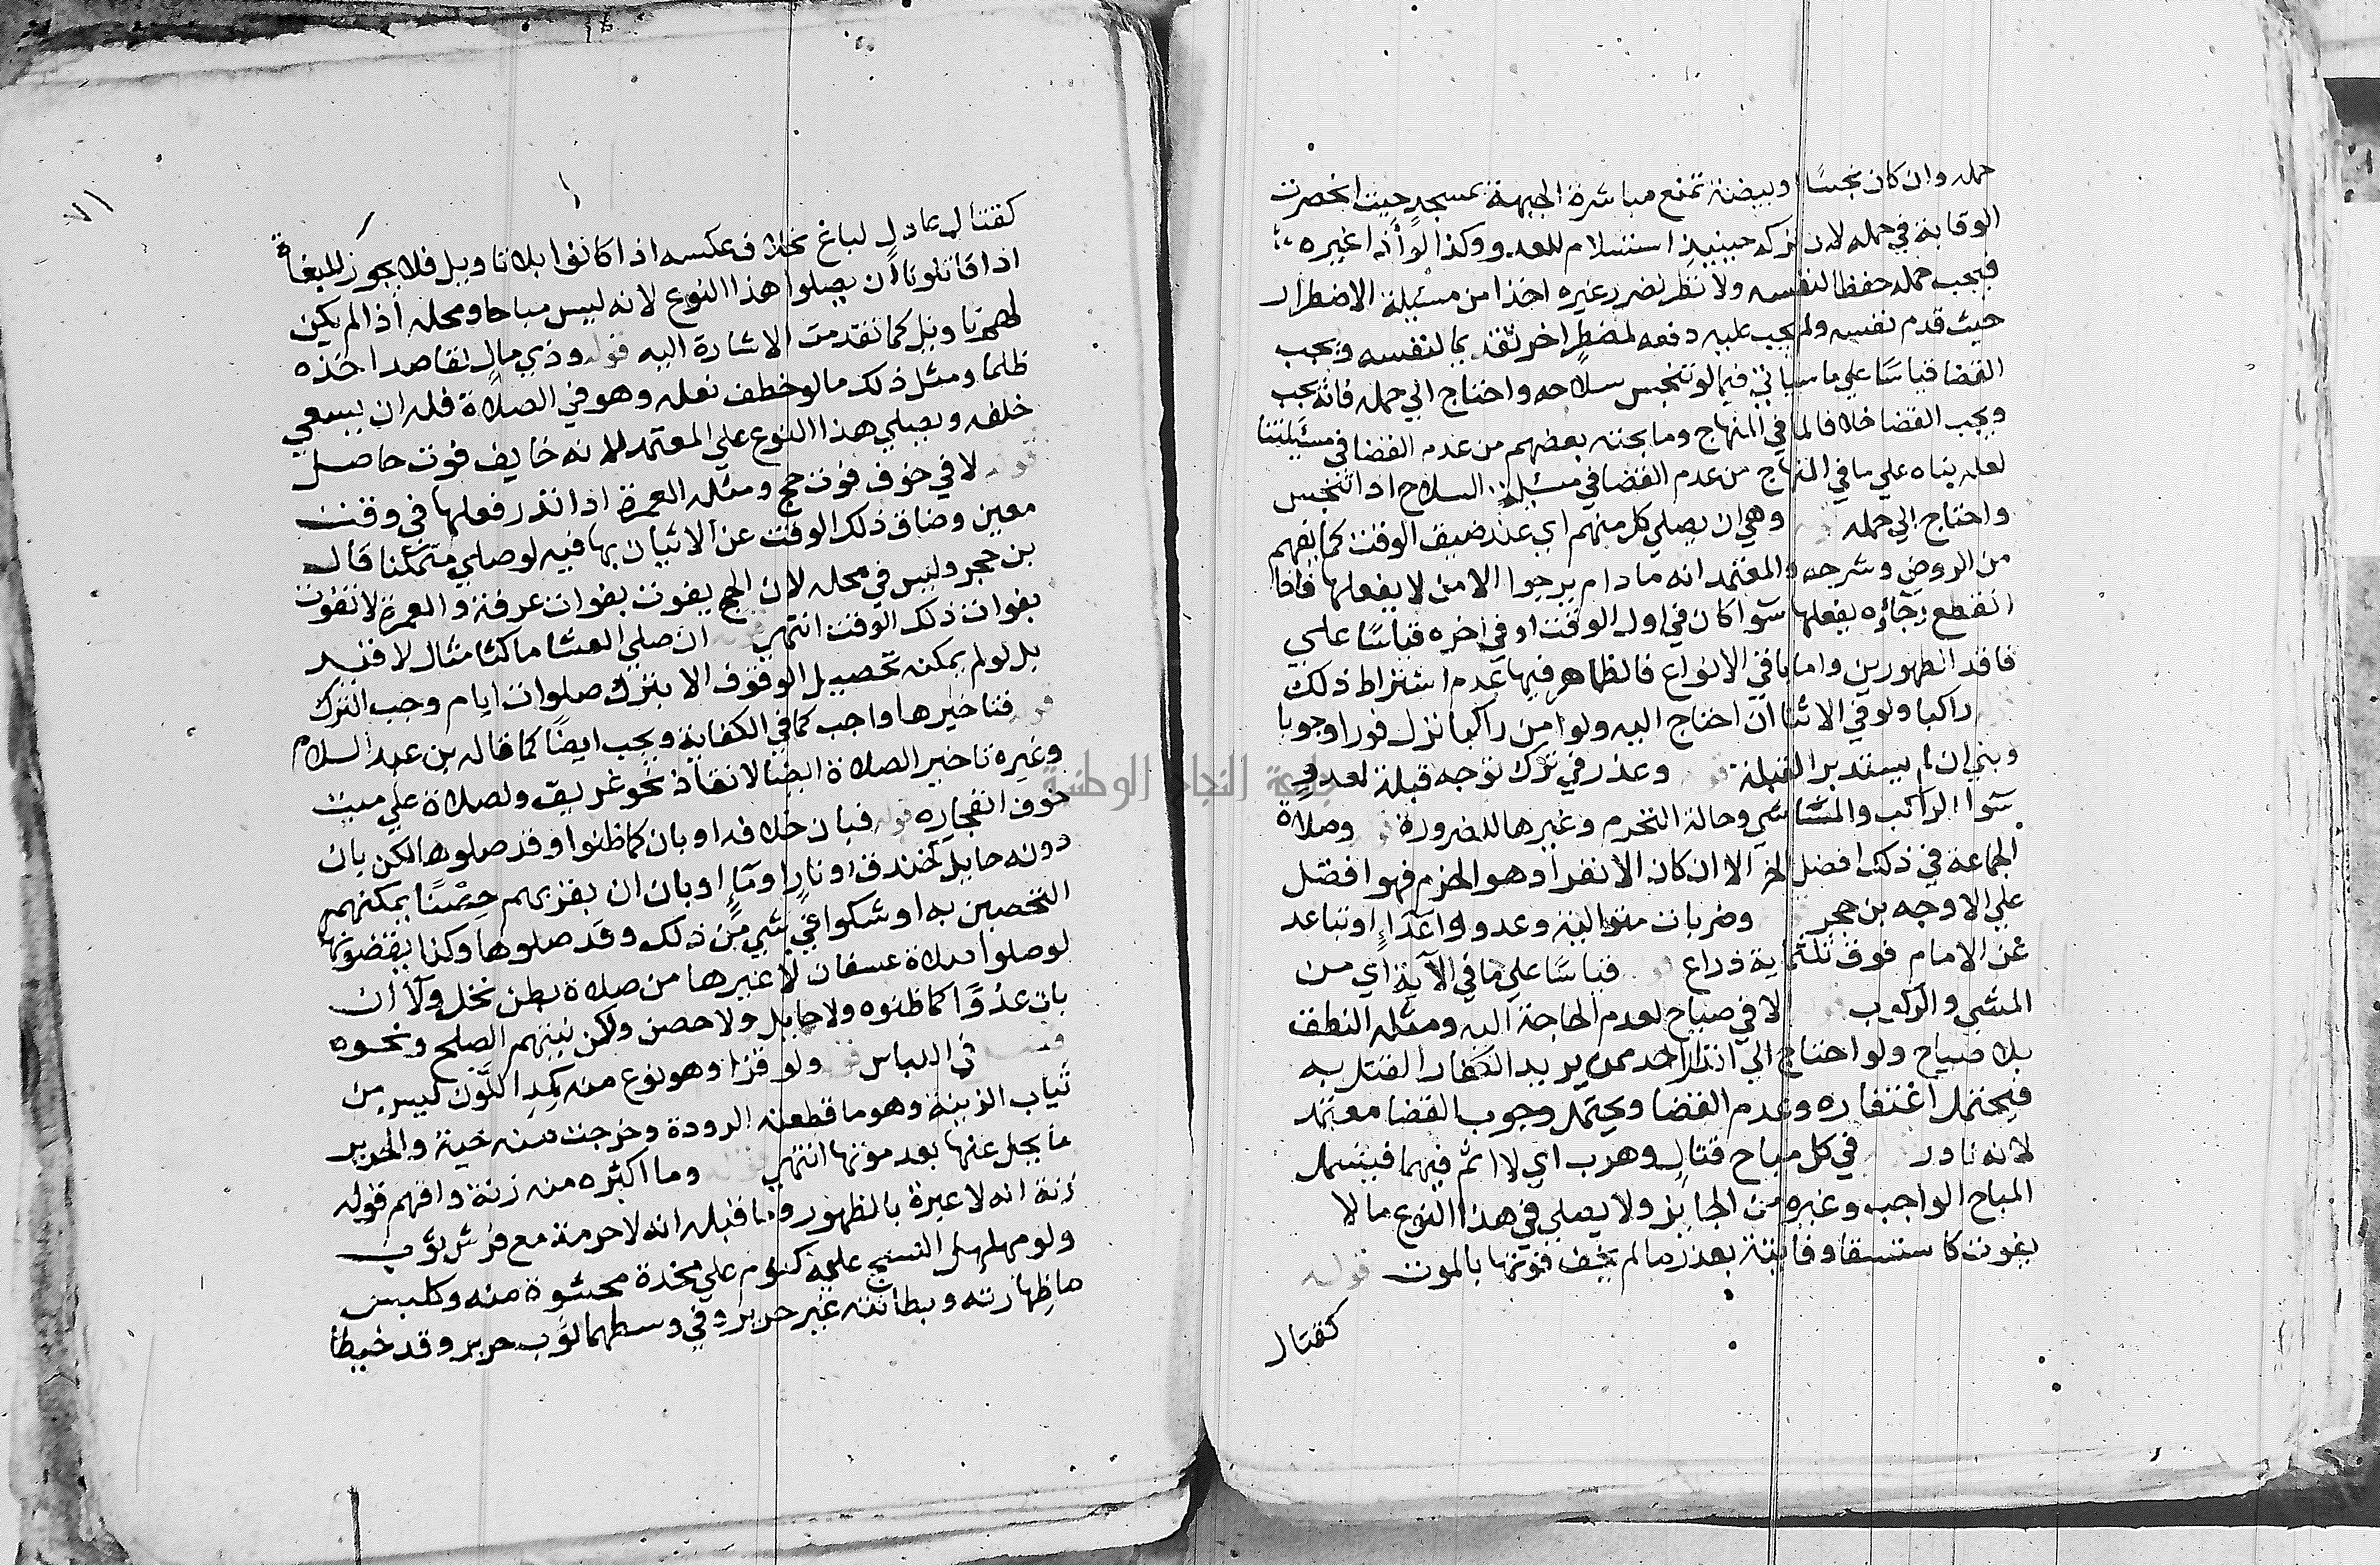 حمله وان كان نجسًا او بيضة تمنع مباشرة الجبهة بمسجد حيث انحصرت
الوقاية في حمله لان تركه حينيذ استسلام للعدو وكذا لو أذا غيره
فيجب حمله حفظا لنفسه ولا نظر لضرر غيره اخذا من مسئلة الاضطرار
حيث قدم نفسه ولم يجب عليه دفعه لمضطر اخر تقديما لنفسه ويجب
القضا قياسًا علي ما سياتي فيما لو تنجس سلاحه واحتاج الي حمله فانه يجب
ويجب القضا خلافا لما في المنهاج وما بحثه بعضهم من عدم القضا في مسئيلتنا
لعله بناه علي ما في المنهاج من عدم القضا في مسئيلة السلاح اذا تنجس
واحتاج الي حمله وهي ان يصلي كل منهم اي عند ضيق الوقت كما يفهم
من الروض وشرحه والمعتمد انه ما دام يرجوا الامن لا يفعلها فاذا
انقطع رجاؤه يفعلها سوا كان في اول الوقت او في اخره قياسًا علي
فاقد الطهورين واما باقي الانواع فالظاهر فيها عدم اشتراط ذلك
راكبا ولو في الاثنا ان احتاج اليه ولو امن راكبا نزل فورا وجوبا
وبني ان لم يستدبر القبلة وعذر في ترك توجه قبلة لعدو
سوا الراكب والماشي وحالة التحرم وغيرها للضرورة وصلاة
الجماعة في ذلك افضل الخ الا ان كان الانفراد هو الحزم فهو افضل
علي الاوجه بن حجر وضربات متوالية وعدو واعدَاءٍ او تباعد
عن الامام فوق ثلثماية ذراع قياسًا علي ما في الآية اي من
المشي والركوب لا في صياح لعدم الحاجة اليه ومثله النطق
بلا صياح ولو احتاج الي انذار احد ممن يريد الكفار الفتك به
فيحتمل اغتفاره وعدم القضا ويحتمل وجوب القضا معتمد
لانه نادر في كل مباح قتال وهرب اي لا اثم فيهما فيشمل
المباح الواجب وغيره من الجايز ولا يصلي في هذا النوع ما لا
يفوت كاستسقا وفايتة بعذر ما لم يخف فوتها بالموت قوله
كقتال
٧١
كقتال عادل لباغ بخلاف عكسه اذا كانوا بلا تاويل فلا يجوز للبغاة
اذا قاتلونا أن يصلوا هذا النوع لانه ليس مباحا ومحله أذا لم يكن
لهم تاويل كما تقدمت الاشارة اليه قوله وذي مال لقاصد اخذه
ظلما ومثل ذلك ما لو خطف نعله وهو في الصلاة فله ان يسعي
خلفه ويصلي هذا النوع علي المعتمد لانه خايف فوت حاصل
قوله لا في خوف فوت حج ومثله العمرة اذا نذر فعلها في وقت
معين وضاق ذلك الوقت عن الاتيان بها فيه لو صلي متمكنا قال
بن حجر وليس في محله لان الحج يفوت بفوات عرفة والعمرة لا تفوت
بفوات ذلك الوقت انتهي قوله ان صلي العشا ماكثا مثال لا قيد
بل لو لم يمكنه تحصيل الوقوف الا بترك صلوات ايام وجب الترك
قوله فتاخيرها واجب كما في الكفاية ويجب ايضًا كما قاله بن عبد السلام
وغيره تاخير الصلاة ايضا لانقاذ نحو غريق ولصلاة علي ميت
خوف انفجاره قوله فبان خلافه او بان كما ظنوا وقد صلوها لكن بان
دونه حايل كخندق او نارٍ او مآءٍ او بان ان بقربهم حِصْنًا يمكنهم
التحصين به او شكوا في شي من ذلك وقد صلوها وكذا يقضونها
لو صلوا صلاة عسفان لا غيرها من صلاة بطن نخل ولا ان
بان عدُوًا كما ظنوه ولا حايل ولا حصن ولكن بينهم الصلح ونحوه
في اللباس قوله ولو قزا وهو نوع منه كمِدِ اللّون ليس من
ثياب الزينة وهو ما قطعته الدودة وخرجت منه حية والحرير
ما يحل عنها بعد موتها انتهي قوله وما اكثره منه زنة وافهم قوله
زنة انه لا عبرة بالظهور وما قبله انه لا حرمة مع فرش ثوب
ولو مهلهل النسج عليه كنوم علي مخدة محشوة منه وكلبس
ما ظهارته وبطانته غير حرير وفي وسطهما ثوب حرير وقد خيطا
جامعة النجاح الوطنية